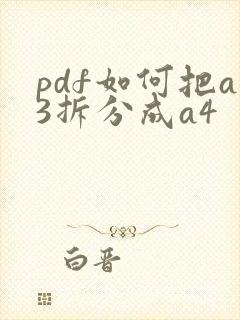 pdf如何把a
3拆分成a4
白晋